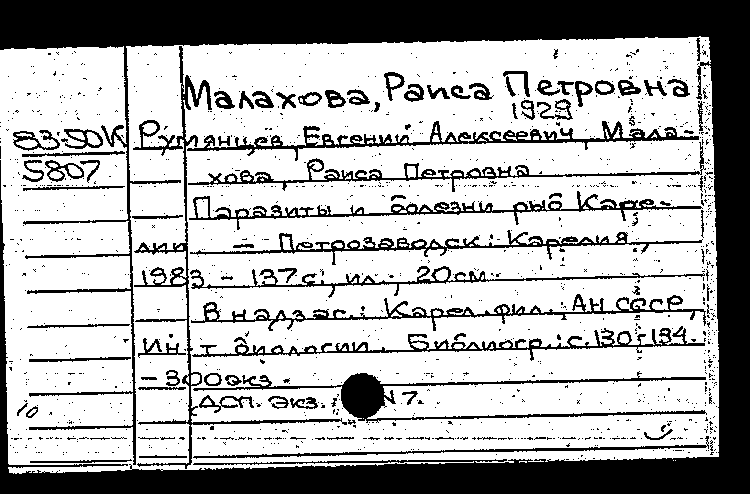 Малахова, Раиса Петровна
1929
83-50К Румянцев, Евгений Алексеевич, Мала-
5807 хова, Раиса Петровна.
Паразиты и болезни рыб Каре-
лии — Петрозаводск: Карелия,
1983 - 137с., ил.; 20см.
В надзаг.: Карел. фил. АН СССР,
Ин-т биологии. Библиогр.: с. 130-134.
- 300экз.
ДСП. Экз. N 7.
10